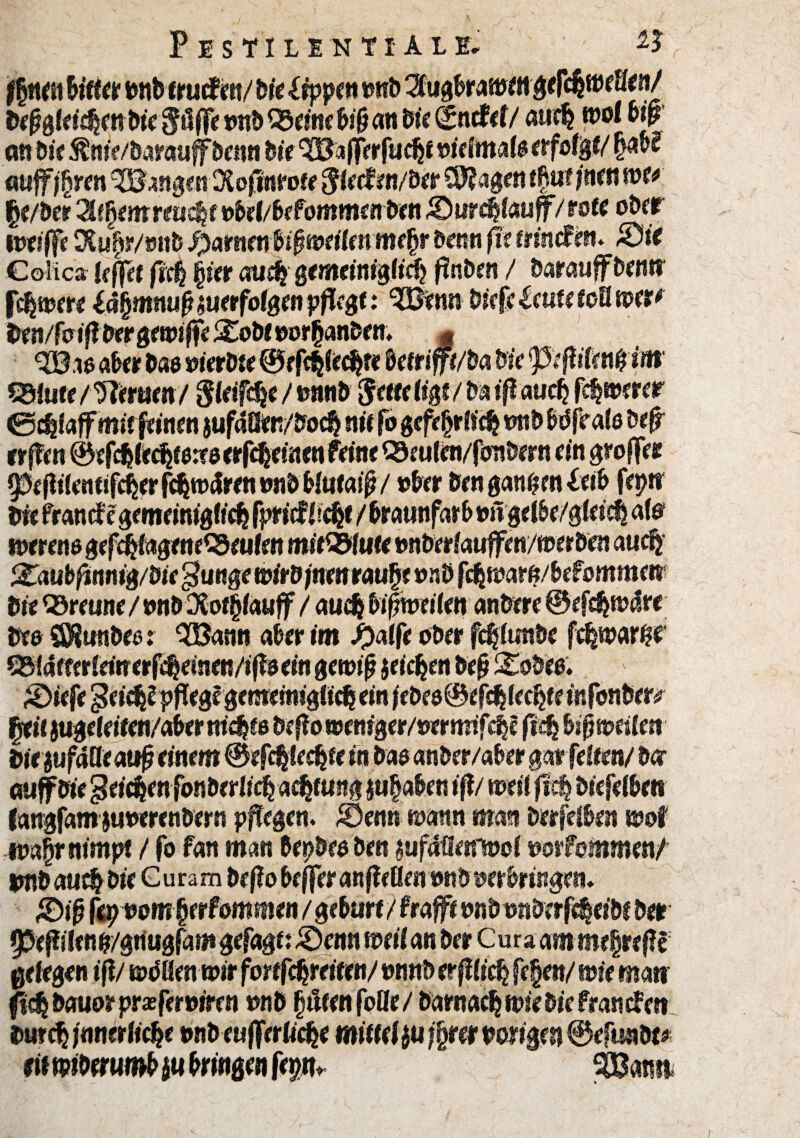 PESTILENTIALE. 23
jhnen bitter vnd trucken/ die Lippen vnd Augbrawen geschwellen/
deßgleichen die Füsse vnd Beine biß an die Enckel/ auch wol biß
an die Knie/darauff denn die Wassersucht vielmals erfolgt/ habe
auff jhren Wangen Rosinrote Flecken/der Magen thut jnen we-
he/der Athem reucht vbel/bekommen den Durchlauff/ rote oder
weisse Ruhr/vnd Harnen bißweilen mehr denn sie trincken. Die
Colica lesset sich hier auch gemeiniglich finden / darauff denn
schwere Lähmnuß zuerfolgen pflegt: Wenn diese Leute toll wer-
den/so ist der gewisse Todt vorhanden.
Was aber das vierdte Geschlechte betrifft/da die Pestilentz im
Blute / Neruen / Fleische / vnnd Fette ligt / da ist auch schwerer
Schlaff mit seinen zufällen/doch nit so gefehrlich vnd böse als deß
ersten Geschlechts: es erscheinen keine Beulen/sondern ein grosser
Pestilentischer schwären vnd blutaiß / vber den gantzen Leib seyn
die krancke gemeiniglich spricklicht / braunfarb vñ gelbe/gleich als
werens geschlagene Beulen mit Blute vnderlauffen/werden auch
Taubsinnig/die Zunge wird jnen rauhe vnd schwartz/bekommen
die Breune / vnd Rothlauff / auch bißweilen andere Geschwäre
des Mundes: Wann aber im Halse oder schlunde schwartze
Blätterlein erscheinen/ists ein gewiß zeichen deß Todes.
Diese Zeichē pflegē gemeiniglich ein jedes Geschlechte insonder-
heit zugeleiten/aber nichts desto weniger/vermischē sich bißweilen
die zufälle auß einem Geschlechte in das ander/aber gar selten/ da
auff die Zeichen sonderlich achtung zuhaben ist/ weil sich dieselben
langsam zuverendern pflegen. Denn wann man derselben wol
warhnimpt / so kan man beydes den zufällen wol vorkommen/
vnd auch die Curam desto besser anstellen vnd verbringen.
Diß sey vom herkommen / geburt / krafft vnd vnderscheidt der
Pestilentz/gnugsam gesagt: Denn weil an der Cura am mehrestē
gelegen ist/ wöllen wir fortschreiten/ vnnd erstlich sehen/ wie man
sich dauor præserviren vnd hüten solle / darnach wie die krancken
durch jnnerliche vnd eusserliche mittel zu jhrer vorigen Gesundt-
eit widerumb zu bringen seyn. Wann